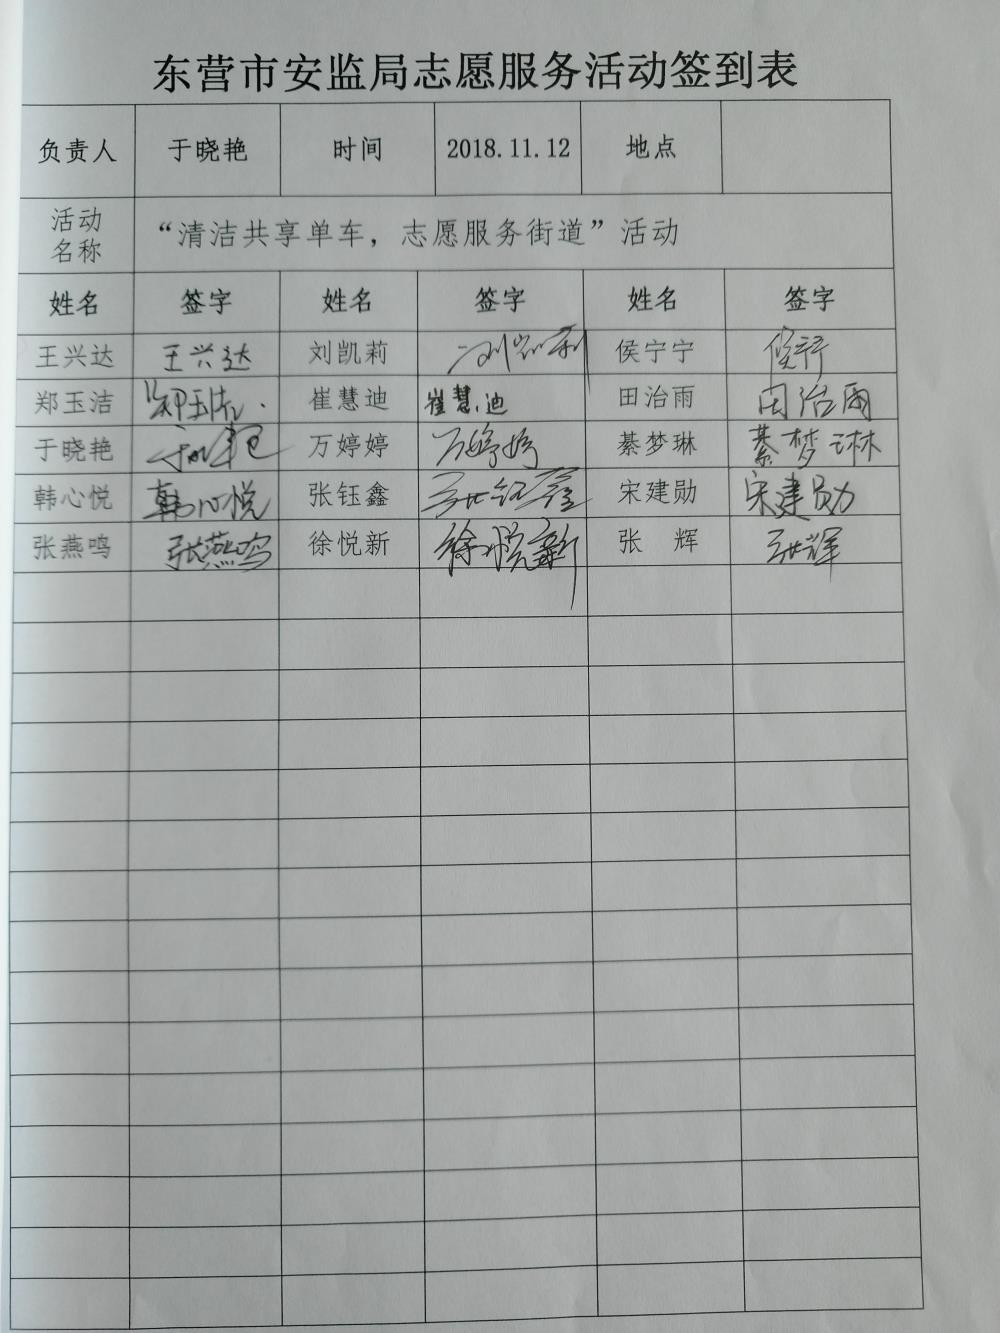 东营市安监局志愿服务活动签到表
负责人 于晓艳 时间 2018.11.12 地点
活动名称 “清洁共享单车，志愿服务街道”活动
姓名 签字 姓名 签字 姓名 签字
王兴达 王兴达 刘凯莉 刘凯莉 侯宁宁 侯宁宁
郑玉洁 郑玉洁 崔慧迪 崔慧迪 田治雨 田治雨
于晓艳 于晓艳 万婷婷 万婷婷 綦梦琳 綦梦琳
韩心悦 韩心悦 张钰鑫 张钰鑫 宋建勋 宋建勋
张燕鸣 张燕鸣 徐悦新 徐悦新 张辉 张辉